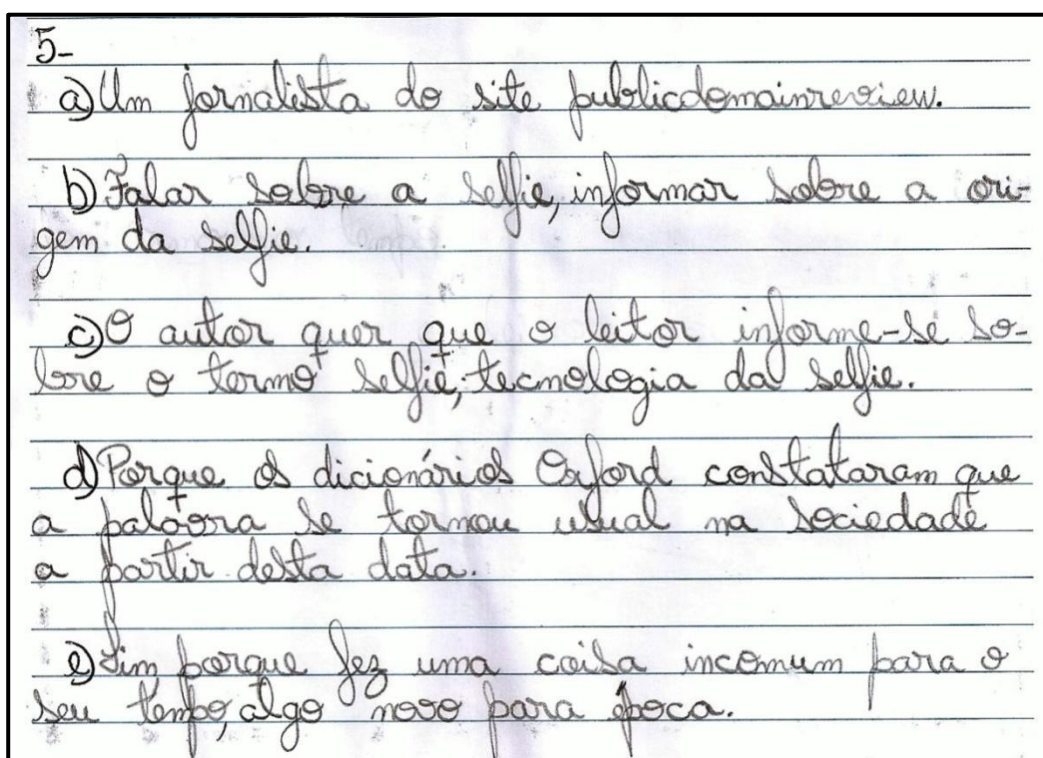 5-
a) Um jornalista do site publicdomainreview.
b) Falar sobre a selfie, informar sobre a ori-
gem da selfie.
c) O autor quer que o leitor informe-se so-
bre o termo selfie, tecnologia da selfie.
d) Porque os dicionários Oxford constataram que
a palavra se tornou usual na sociedade
a partir desta data.
e) Sim, porque fez uma coisa incomum para o
seu tempo, algo novo para época.